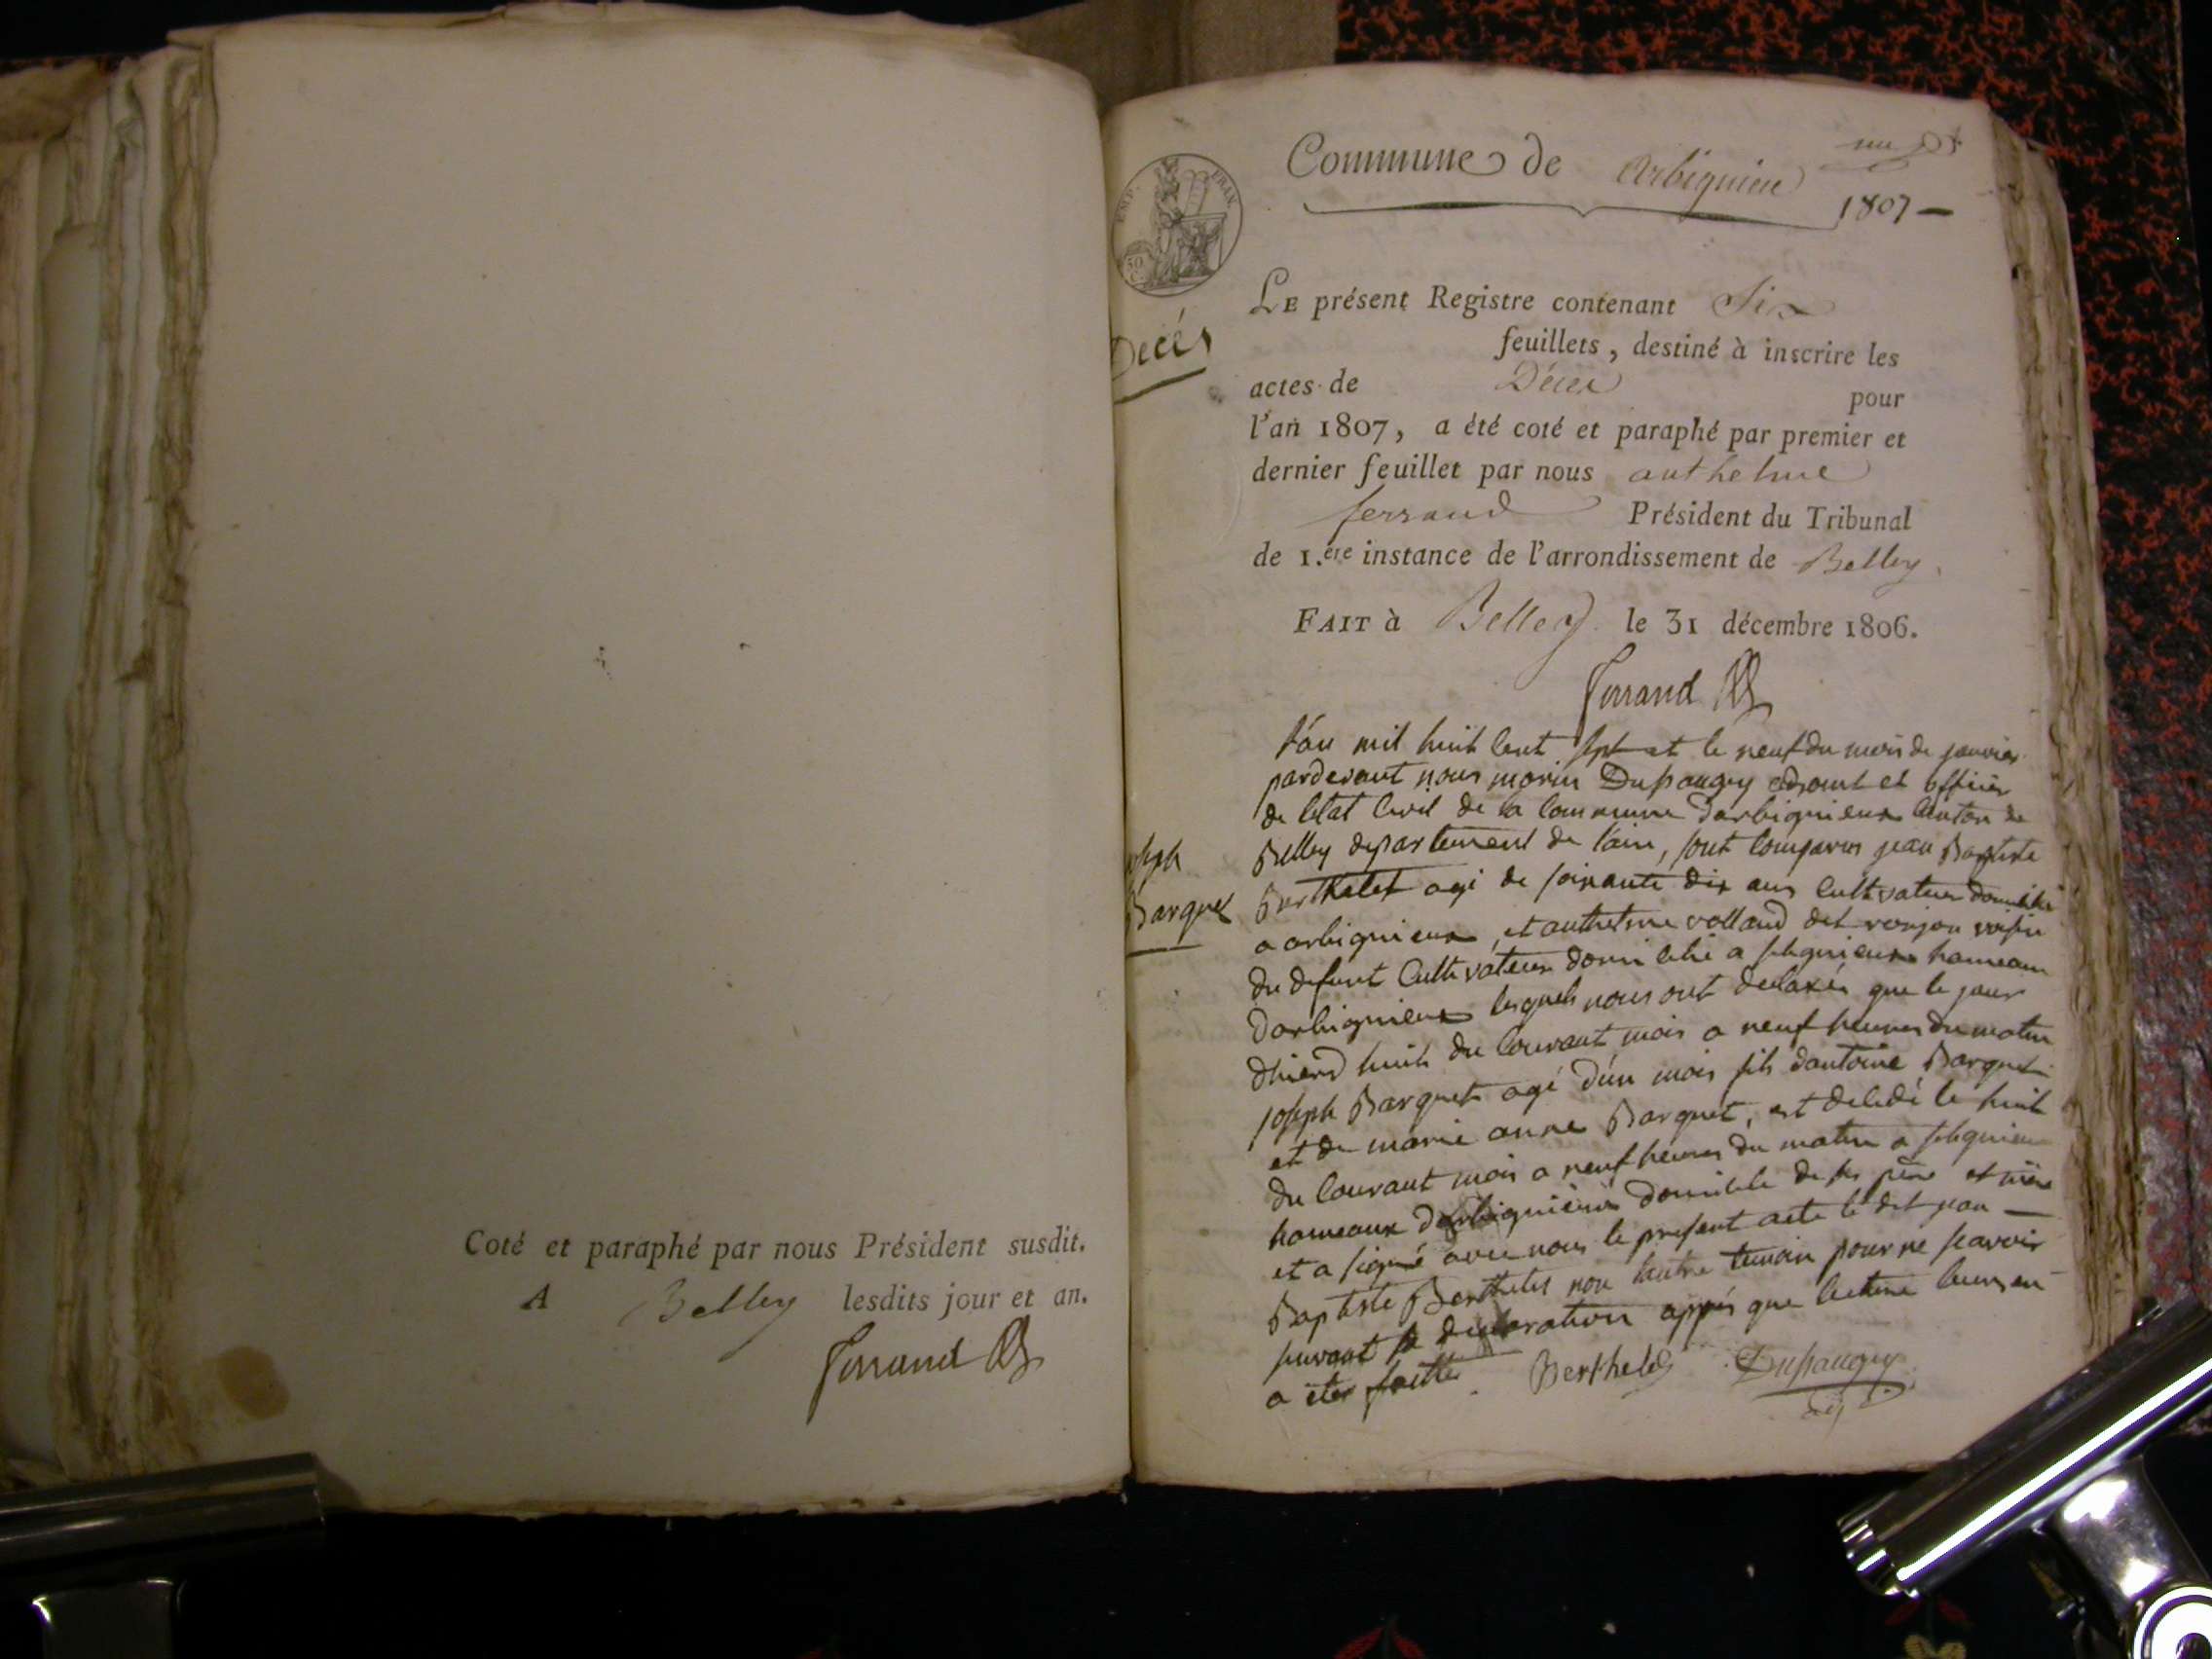 Coté et paraphé par nous Président susdit.
A Belley lesdits jour et an.
ferrand
Commune de Arbignieu
1807 —
EMP. FRAN.
50
Décés
LE présent Registre contenant Six
feuillets, destiné à inscrire les
actes de Décès pour
l'an 1807, a été coté et paraphé par premier et
dernier feuillet par nous anthelme
ferrand Président du Tribunal
de 1.ere instance de l'arrondissement de Belley
FAIT à Belley le 31 décembre 1806.
ferrand
L'an mil huit cent sept et le neuf du mois de janvier
pardevant nous morin Dupaugey adjoint et officier
de letat Civil de la Commune darbignieux Canton de
Belley departement de l'ain, sont comparus jean Baptiste
Berthelet agé de soixante dix ans Cultivateur domicilié
a arbignieux, et anthelme volland dit voisin
du defunt Cultivateur domicilié a slignieux hameau
darbignieux lesquels nous ont declarés que le jour
dhierd huit du Courant mois a neuf heures du matin
joseph Barquet agé d'un mois fils dantoine Barquet
et de marie anne Barquet, est decedé le huit
du Courant mois a neuf heures du matin a
hameaux darbignieux domicile de ses père et mère
et a signé avec nous le present acte le dit jean —
Baptiste Berthelet non lautre temoin pour ne scavoir
suivant sa declaration appés que lecture leur en
a étés faitte. Berthelet Dupaugey
adj
joseph
Barquet